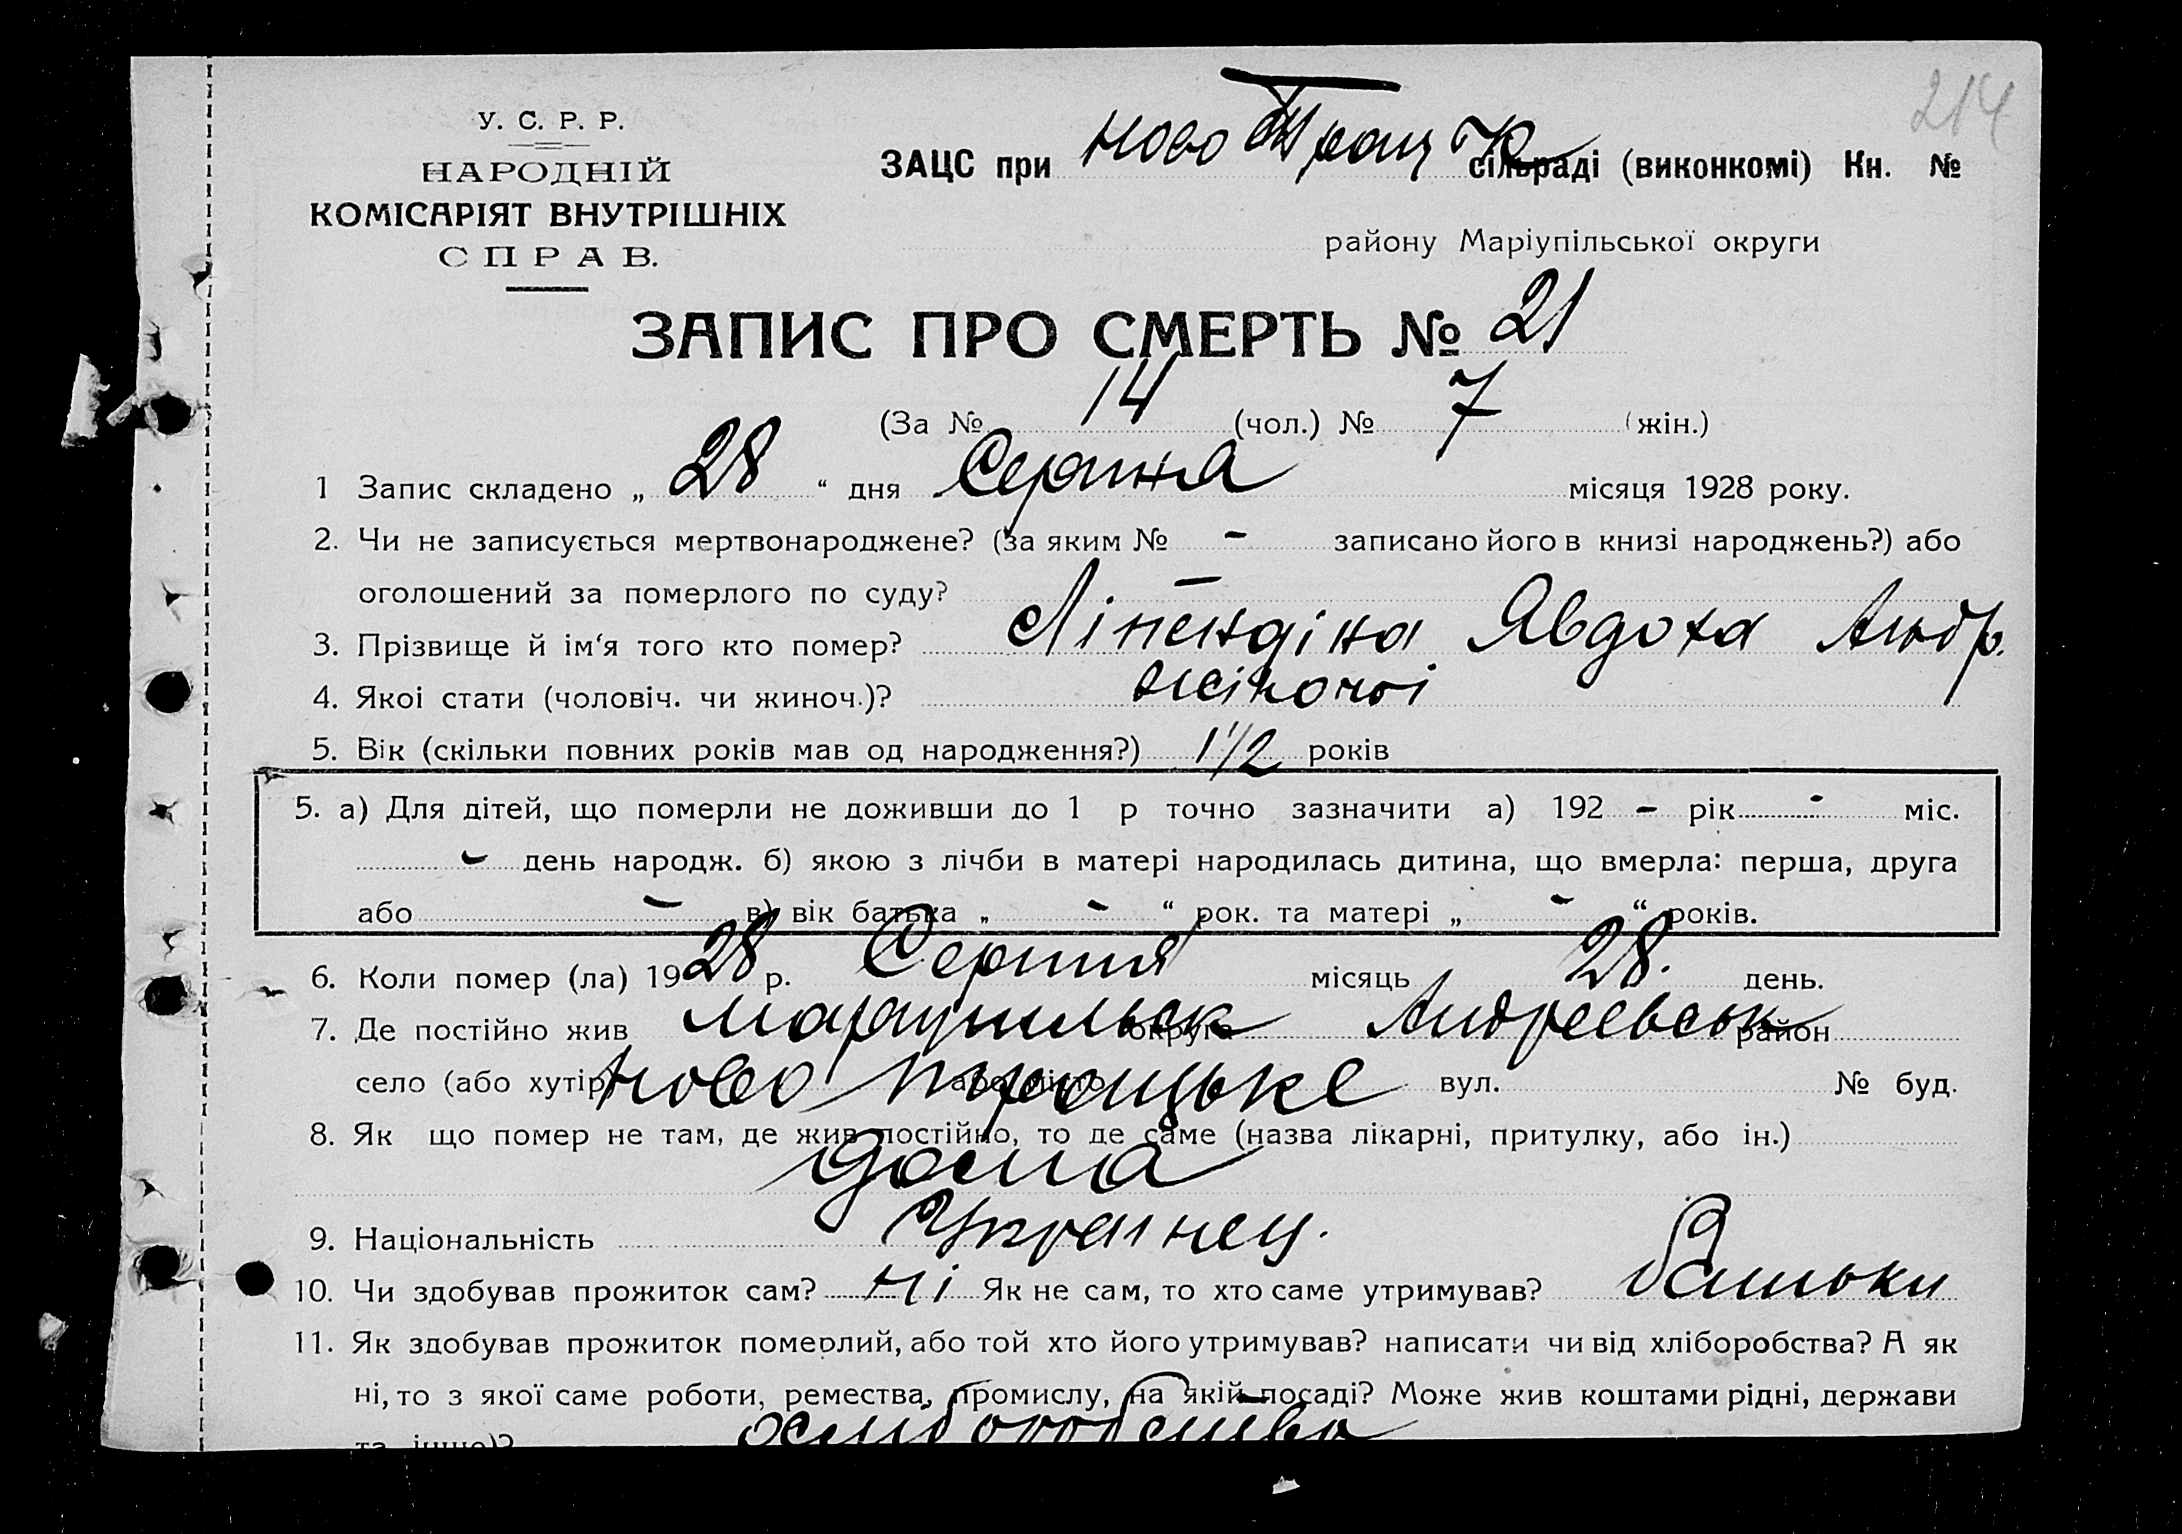 214
У. С. Р. Р.
НАРОДНІЙ
КОМІСАРІЯТ ВНУТРІШНІХ
СПРАВ.
ЗАЦС при Ново Троиц К сільраді (виконкомі) Кн. №
району Маріупільської округи
ЗАПИС ПРО СМЕРТЬ № 21
(За № 14 (чол.) № 7 (жін.)
1 Запис складено „ 28 “ дня Серпня місяця 1928 року.
2. Чи не записується мертвонароджене? (за яким № - записано його в книзі народжень?) або
оголошений за померлого по суду? -
3. Прізвище й ім‘я того кто помер? Явдоха Андр.
4. Якоі стати (чоловіч. чи жиноч.)? жіночоі
5. Вік (скільки повних років мав од народження?) 1 1/2 років
5. а) Для дітей, що померли не доживши до 1 р точно зазначити а) 192 - рік - міс.
- день народж. б) якою з лічби в матері народилась дитина, що вмерла: перша, друга
або - в) вік батька „ - “ рок. та матері „ - “ років.
6. Коли помер (ла) 1928 р. Серпня місяць 28. день.
7. Де постійно жив округа Андреевськ район
село (або хутір) Ново Троицьке або місто вул. № буд.
8. Як що помер не там, де жив постійно, то де саме (назва лікарні, притулку, або ін.)
дома
9. Національність Украинец.
10. Чи здобував прожиток сам? Ні Як не сам, то хто саме утримував? Батьки
11. Як здобував прожиток померлий, або той хто його утримував? написати чи від хліборобства? А як
ні, то з якої саме роботи, ремества, промислу, на якій посаді? Може жив коштами рідні, держави
та інше)? хліборобство